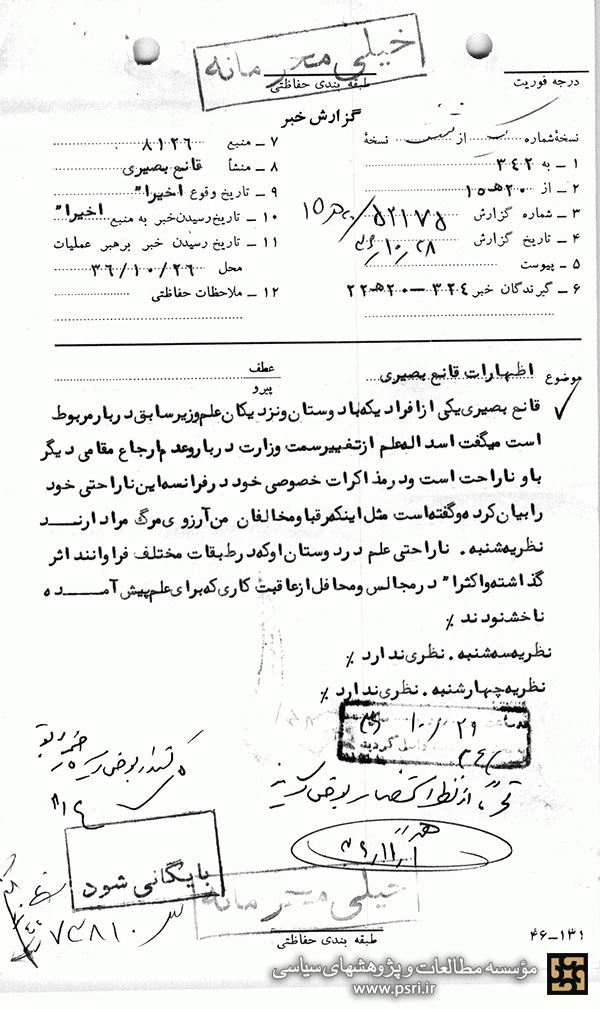 خیلی محرمانه
طبقه بندی حفاظتی
درجه فوریت
گزارش خبر
نسخهٔ شماره از نسخهٔ
۱ ــ به ۳۴۲
۲ ــ از ۲۰هـ۱۵
۳ ــ شماره گزارش ۵۲۱۷۵/۲۰هـ۱۵
۴ ــ تاریخ گزارش ۳۶/۱۰/۲۸
۵ ــ پیوست
۶ ــ گیرندگان خبر ۳۲۴ــ۲۰هـ۲۲
۷ ــ منبع ۸۱۲۶
۸ ــ منشأ قانع بصیری
۹ ــ تاریخ وقوع اخیرا"
۱۰ ــ تاریخ رسیدن خبر به منبع اخیرا"
۱۱ ــ تاریخ رسیدن خبر برهبر عملیات
محل ۳۶/۱۰/۲۶
۱۲ ــ ملاحظات حفاظتی
موضوع اظهارات قانع بصیری
عطف
پیرو
قانع بصیری یکی از افراد یکه با دوستان و نزدیکان علم وزیر سابق دربار مربوط
است میگفت اسداله علم از تغییر سمت وزارت دربار و عدم ارجاع مقامی دیگر
باو ناراحت است و در مذاکرات خصوصی خود در فرانسه این ناراحتی خود
را بیان کرده و گفته است مثل اینکه رقبا و مخالفان من آرزوی مرگ مرا دارنـــد
نظریه شنبه. ناراحتی علم در دوستان او که در طبقات مختلف فراوانند اثر
گذاشته و اکثرا" در مجالس و محافل از عاقبت کاری که برای علم پیش آمـــده
ناخشنودند ٪
نظریه سه‌شنبه. نظری ندارد ٪
نظریه چهارشنبه. نظری ندارد ٪
۱۰/۲۹
بایگانی شود
۷۳۸۱۰
خیلی محرمانه
طبقه بندی حفاظتی
۴۶ــ۱۳۱
مؤسسه مطالعات و پژوهشهای سیاسی
www.psri.ir